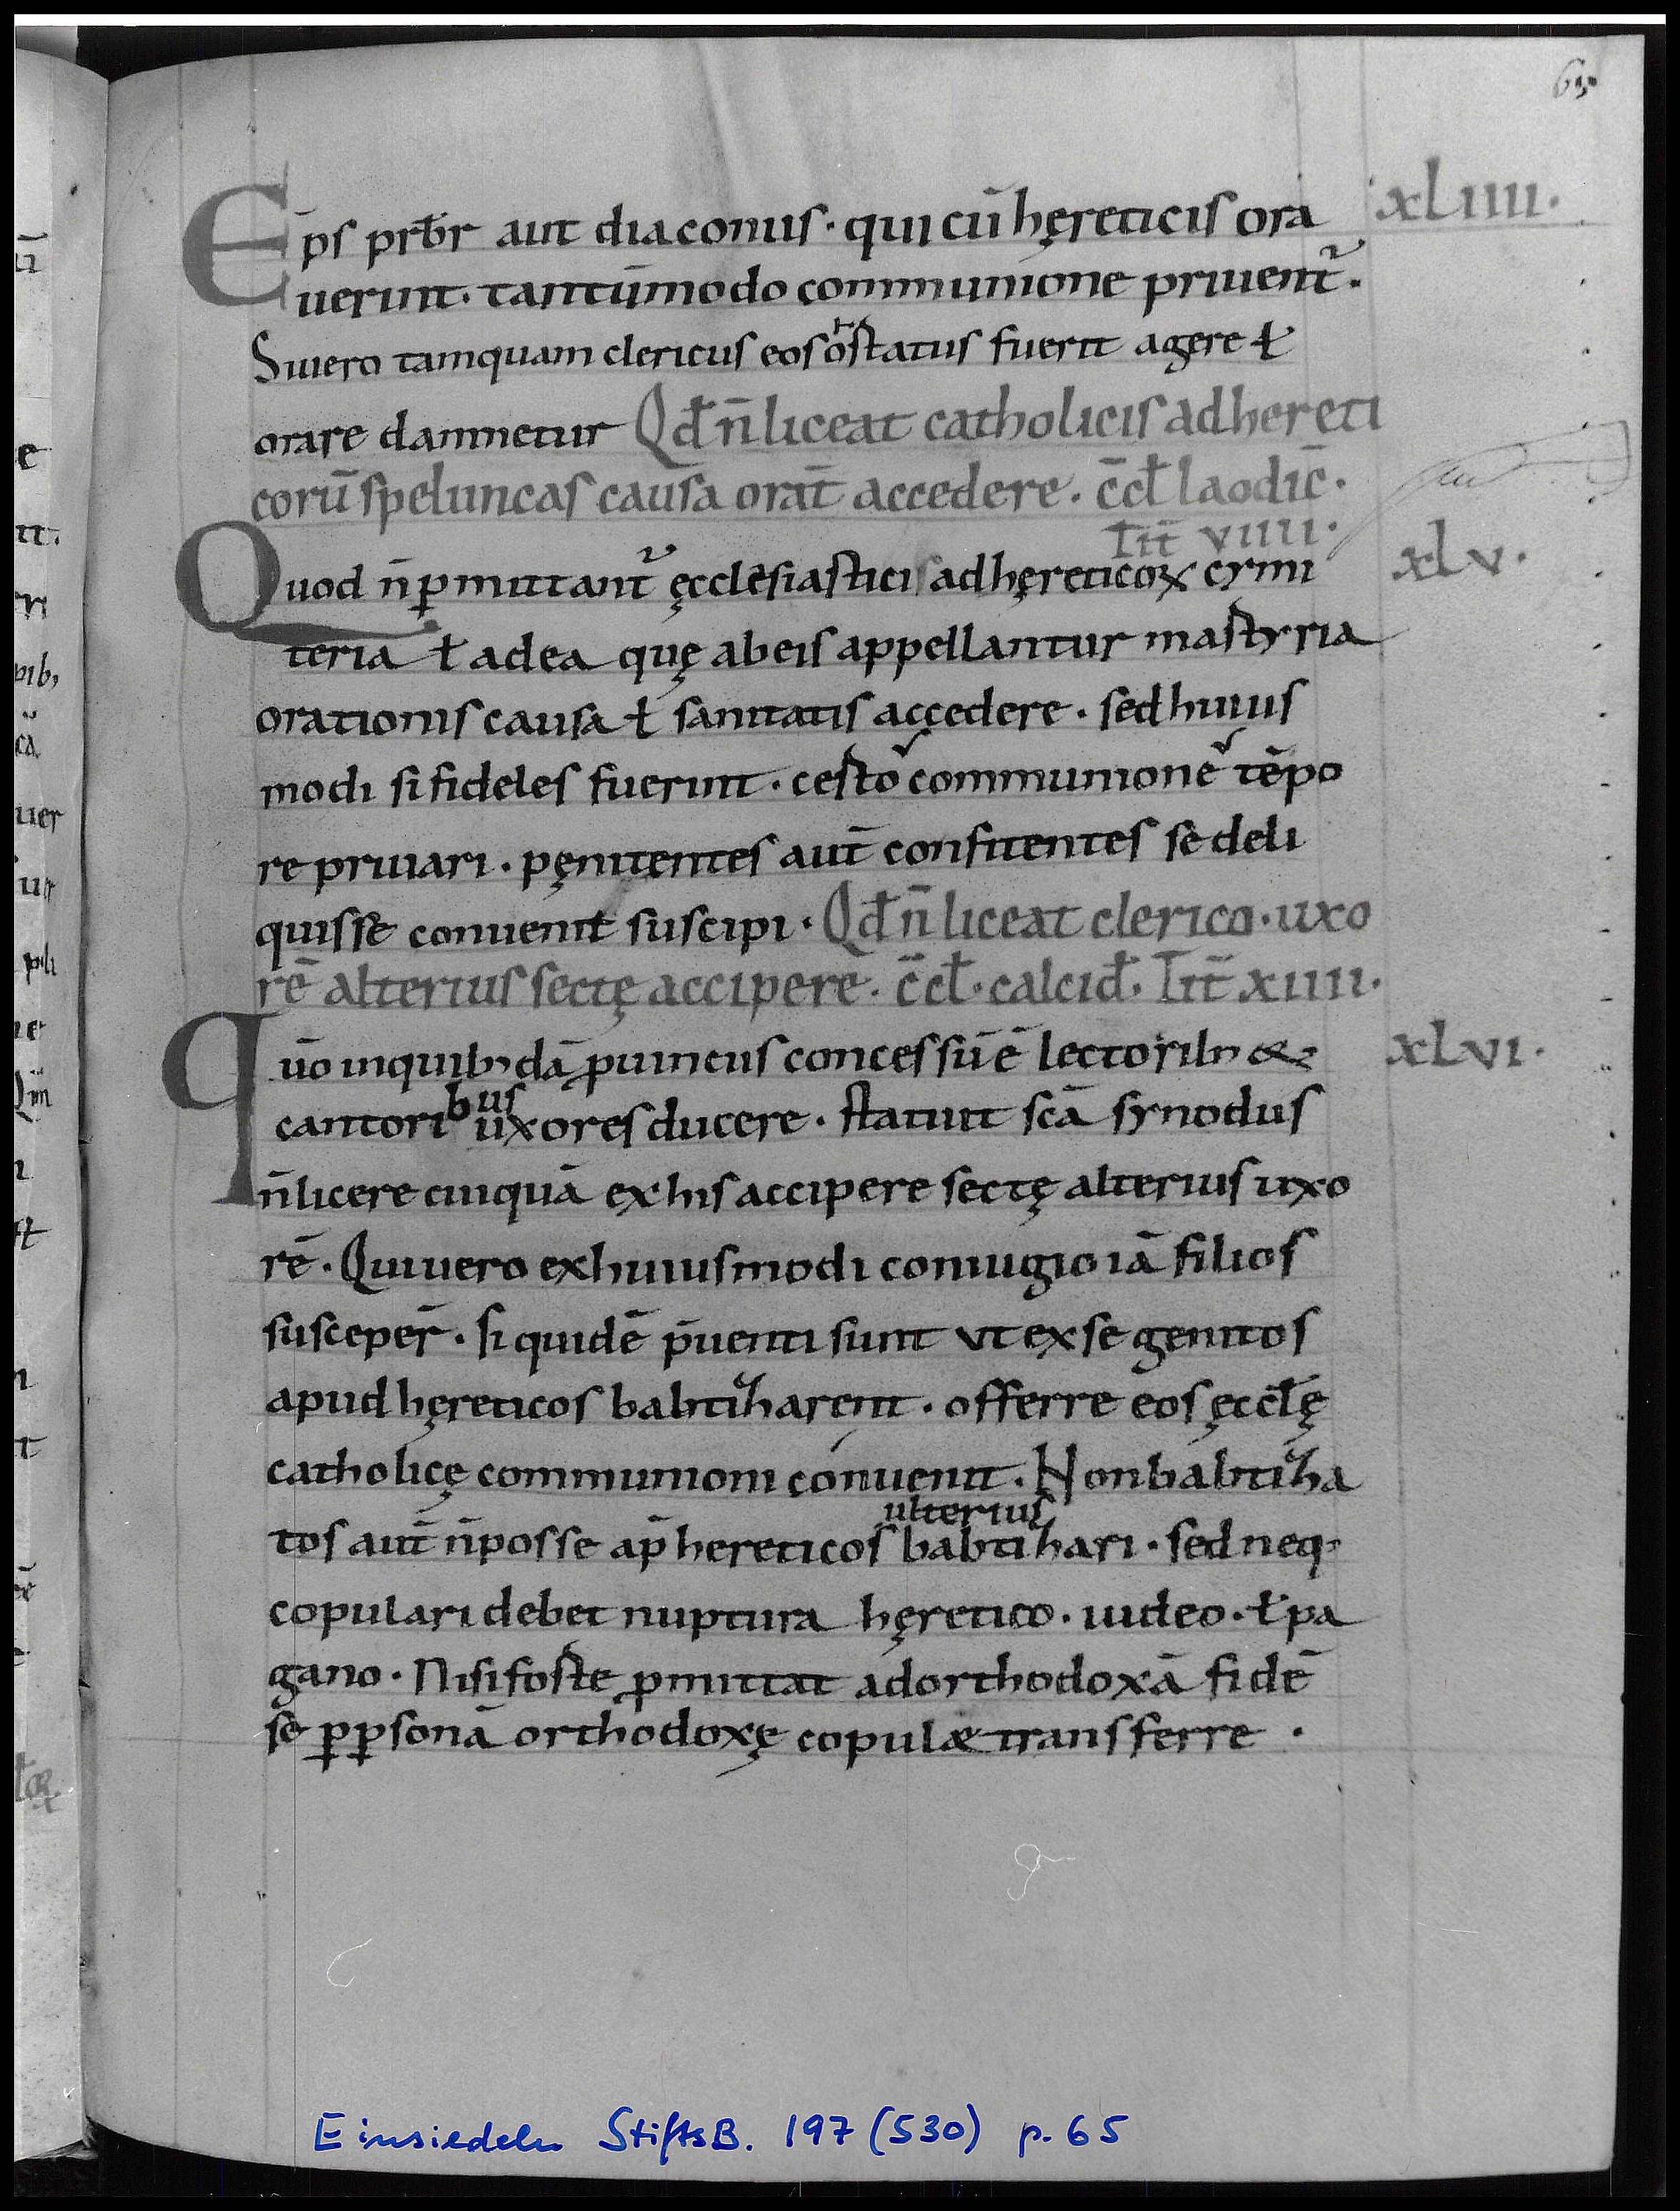 65.
Ep̄s prb̄r aut diaconus · qui cū hęreticis ora
xLIIII ·
uerint · tantūmodo communione priuent᷑ ·
Si uero tamquam clericus eos ortatus fuerit agere ł
orare damnetur Qđ n̄ liceat catholicis ad hereti
corū speluncas causa orat̄ accedere · c̄cł laodic̄ ·
Tīt VIIII ·
Quod n̄ ꝑmittant᷑ ęcclēsiastici ad hęreticoꝝ cymi
xLV ·
teria ł ad ea quę ab eis appellantur mastyria
orationis causa ł sanitatis accedere · sed huius
modi si fideles fuerint · cesto communione tēpo
re priuari · pęnitentes aut̄ confitentes se deli
quisse conuenit suscipi · Qđ n̄ liceat clerico · uxo
rē alterius sectę accipere · c̄cł · calciđ · Tīt XIIII ·
qūo in quibꝫdā ꝓuinciis concessū ē lectoribꝫ &
xLVI ·
cantoribus uxores ducere · statuit scā synodus
n̄ licere cuiquā ex his accipere sectę alterius uxo
rē · Qui uero ex huiusmodi coniugio iā filios
susceper̄ · si quidē p̄uenti sunt ut ex se genitos
apud hęreticos babtiharent · offerre eos ęccłę
catholicę communioni conuenit · Non babtiha
ulterius
tos aut̄ n̄ posse ap̄ hereticos babtihari · sed neqꝫ
copulari debet nuptura hęretico · iudeo · ł pa
gano · Nisi foste ꝓmittat ad orthodoxā fidē
se ꝑ ꝑsonā orthodoxę copulæ transferre ·
Einsiedeln StiftsB. 197 (530) p. 65